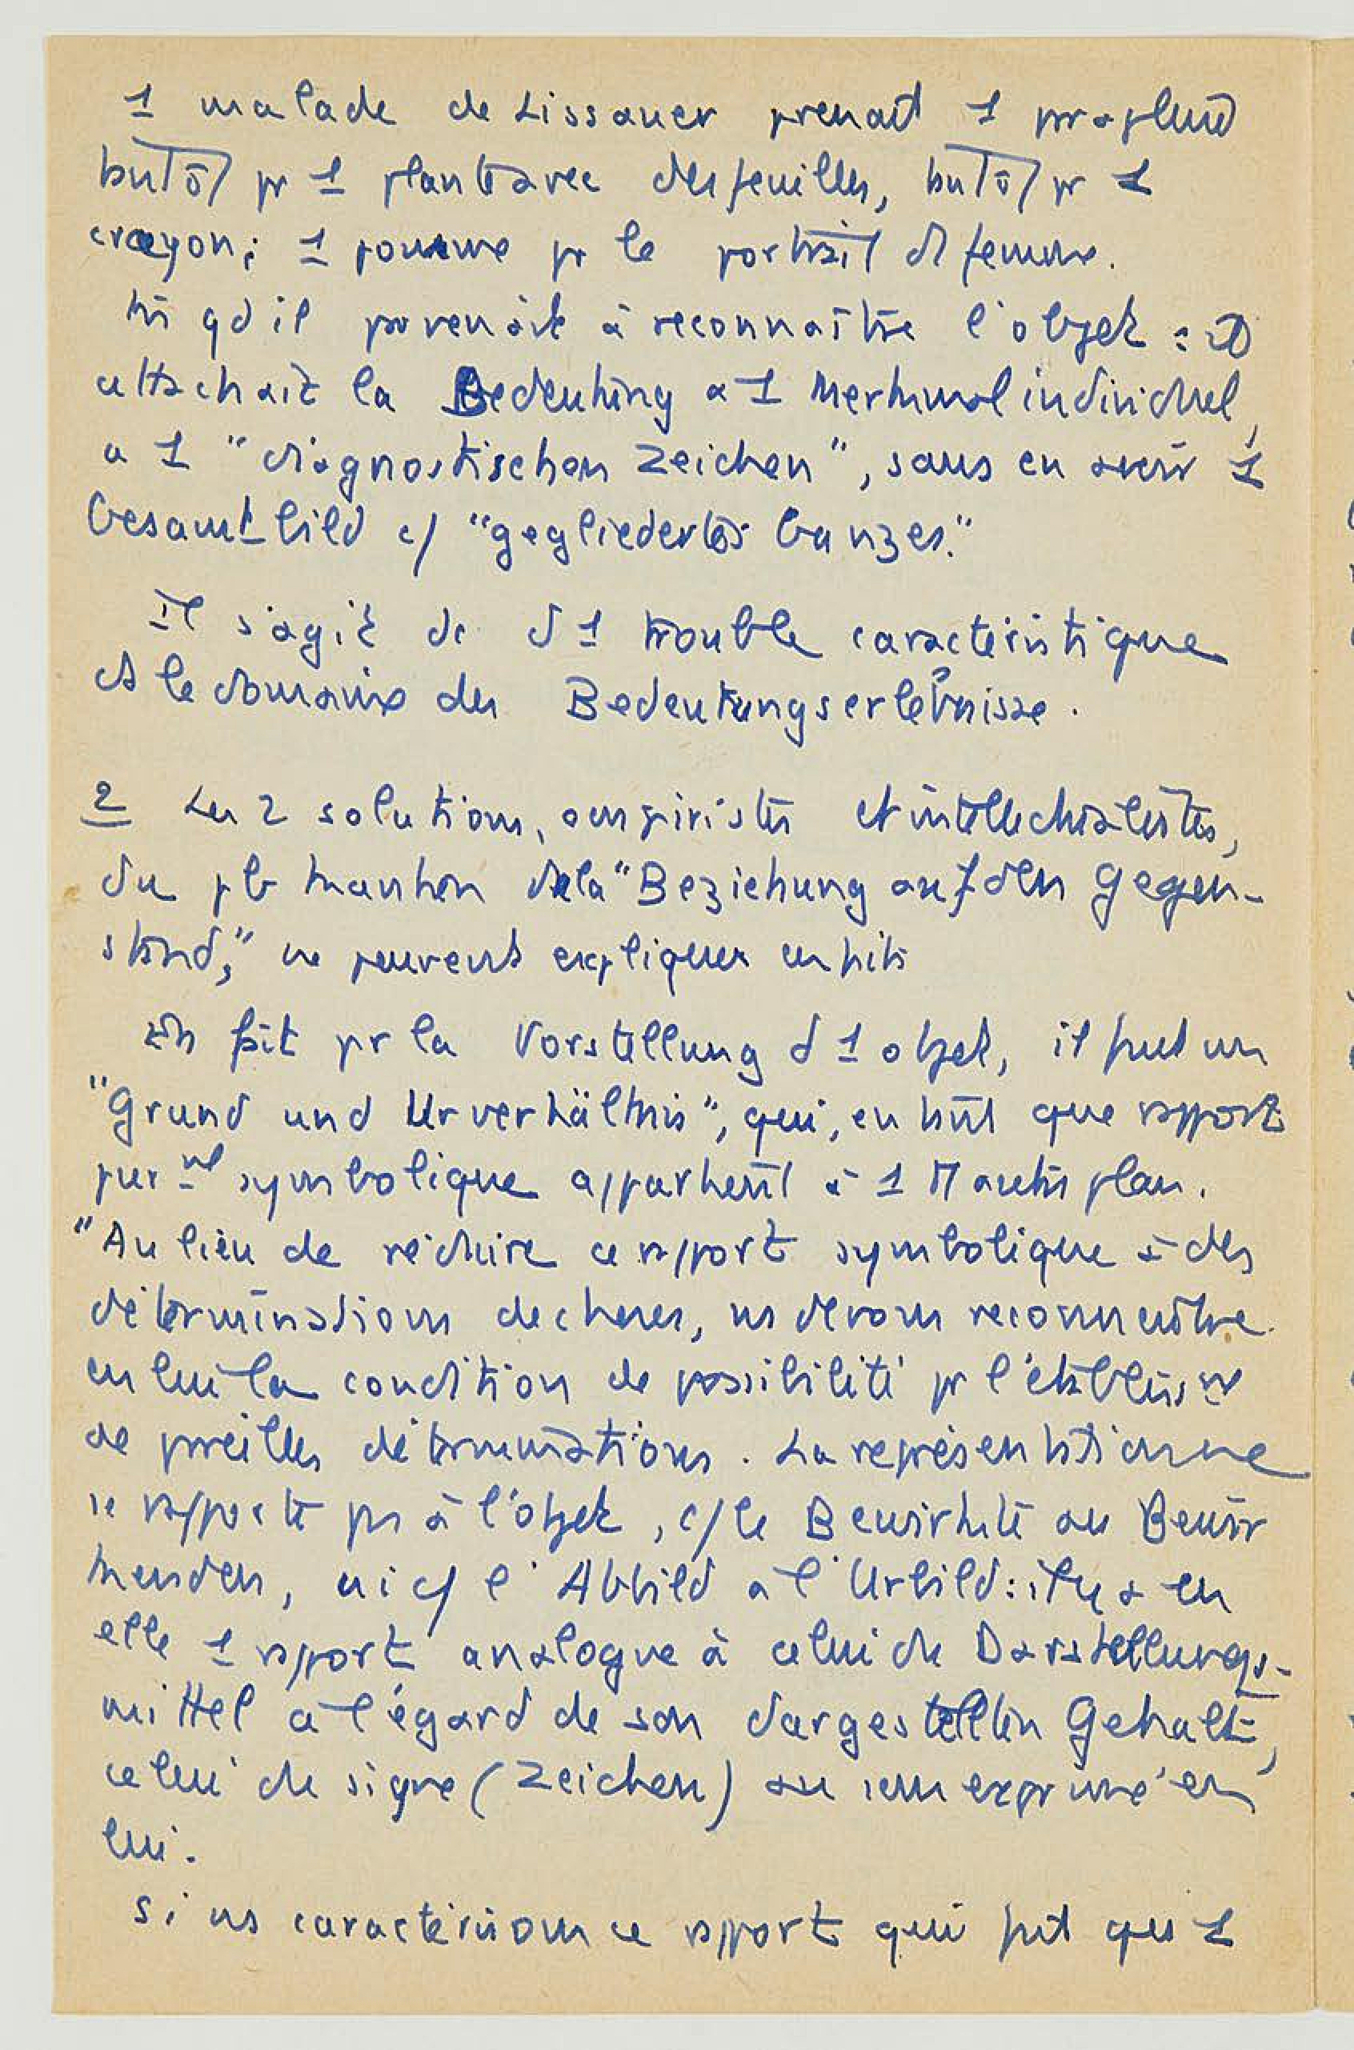 1 malade de Lissauer prenait 1 parapluie
tantôt pr 1 plante avec des feuilles, tantôt pr 1
crayon; 1 pomme pr le portrait d1 femme.
Ms qd il parvenait à reconnaître l'objet : il
attachait la Bedeutung à 1 Merkmal individuel,
à 1 "diagnostischen Zeichen", sans en avoir 1
Gesamtbild c/ "gegliedertes Ganzes."
Il s'agit dc d1 trouble caractéristique
ds le domaine des Bedeutungserlebnisse.
2 Les 2 solutions, empiristes et intellectualistes,
du pb kantien de la "Beziehung auf den Gegen-
stand," ne peuvent expliquer ces faits
En fait pr la Vorstellung d1 objet, il faut un
"Grund und Urverhältnis", qui, en tant que rapport
purnt symbolique appartient à 1 tt autre plan.
"Au lieu de réduire ce rapport symbolique à des
déterminations de choses, ns devons reconnaître
en lui la condition de possibilité pr l'établisst
de pareilles déterminations. La représentation ne
se rapporte pas à l'objet, c/ le Bewirkte au Bewir
kenden, ni c/ l'Abbild à l'Urbild : il y a en
elle 1 rapport analogue à celui du Darstellungs-
mittel à l'égard de son dargestellten Gehalt,
celui du signe (Zeichen) au sens exprimé en
lui.
Si ns caractérisons ce rapport qui fait que 1